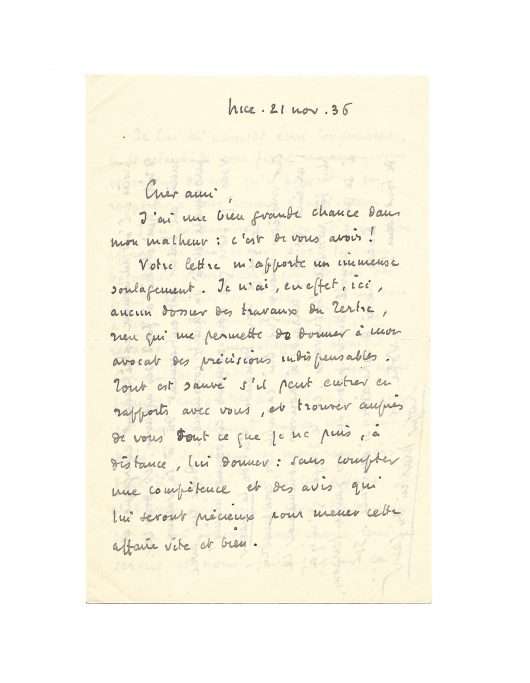 Nice . 21 nov . 36
Cher ami,
J'ai une bien grande chance dans
mon malheur : c'est de vous avoir !
Votre lettre m'apporte un immense
soulagement . Je n'ai, en effet, ici,
aucun dossier des travaux du Tertre,
rien qui me permette de donner à mon
avocat des précisions indispensables .
Tout est sauvé s'il peut entrer en
rapports avec vous, et trouver auprès
de vous tout ce que je ne puis, à
distance, lui donner : sans compter
une compétence et des avis qui
lui seront précieux pour mener cette
affaire vite et bien .